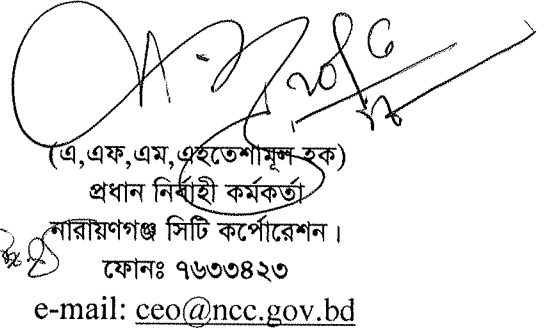 (এ,এফ,এম,এহতেশামুল হক)
প্রধান নির্বাহী কর্মকর্তা
নারায়ণগঞ্জ সিটি কর্পোরেশন।
ফোনঃ ৭৬৩৩৪২৩
e-mail: ceo@ncc.gov.bd